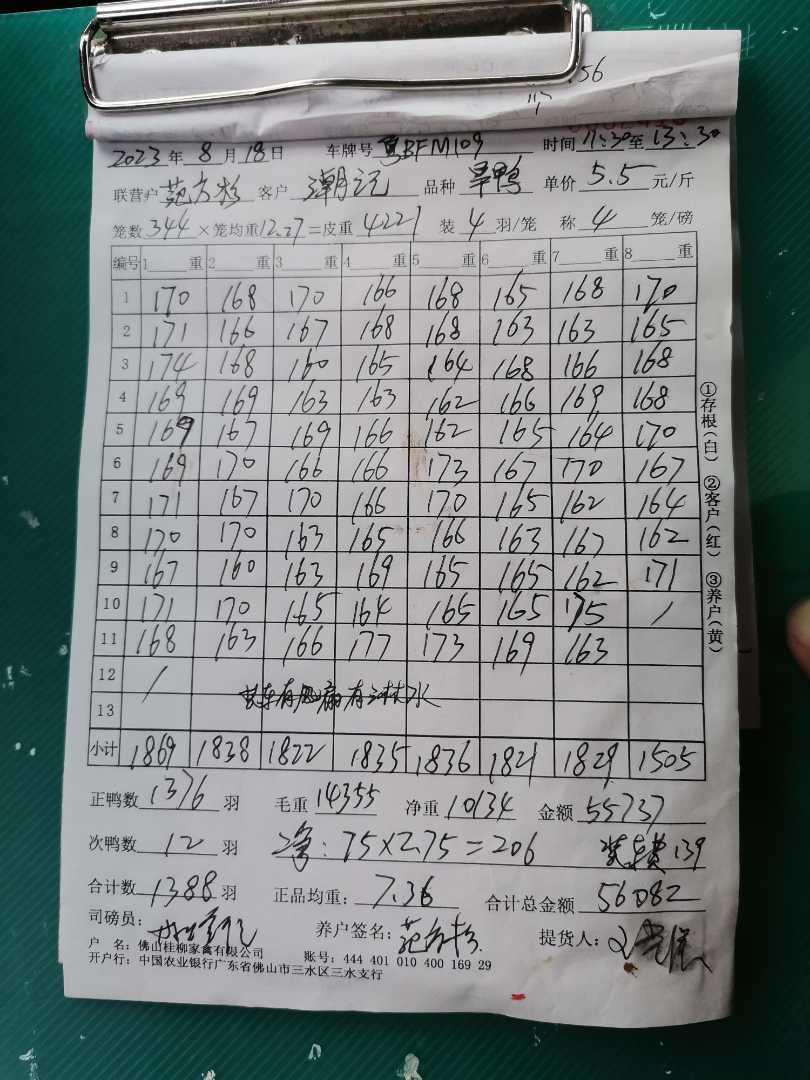 56
2023年8月18日 车牌号粤BFM109 时间11:30至13:30
联营户范方杉客户潮记 品种旱鸭 单价5.5元/斤
笼数344×笼均重12.27=皮重4221 装4羽/笼 称4笼/磅
编号 1重 2重 3重 4重 5重 6重 7重 8重
1 170 168 170 166 168 165 168 170
2 171 166 167 168 168 163 163 165
3 174 168 160 165 164 168 166 168
4 169 169 163 163 162 166 169 168
5 169 167 169 166 162 165 164 170
6 169 170 166 166 173 167 170 167
7 171 167 170 166 170 165 162 164
8 170 170 163 165 166 163 167 162
9 167 160 163 169 165 165 162 171
10 171 170 165 164 165 165 175 /
11 168 163 166 177 173 169 163
12 /
装车有风扇有淋水
13
小计 1869 1838 1822 1835 1836 1821 1829 1505
正鸭数1376羽 毛重14355 净重10134 金额55737
次鸭数12羽 净:75×2.75=206 装车费139
合计数1388羽 正品均重:7.36 合计总金额56082
司磅员: 养户签名:范方杉 提货人:
户 名:佛山桂柳家禽有限公司 账号:444 401 010 400 169 29
开户行:中国农业银行广东省佛山市三水区三水支行
①存根(白) ②客户(红) ③养户(黄)